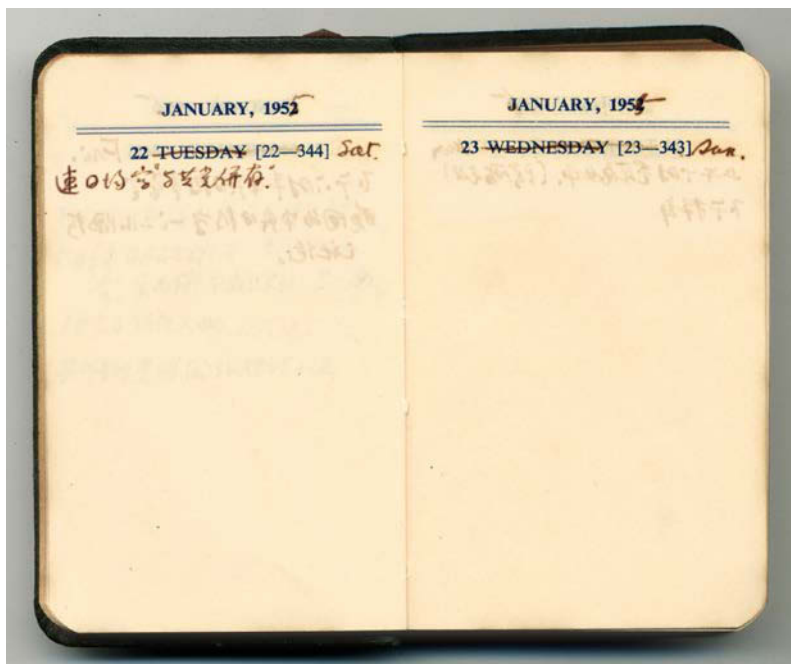 JANUARY, 1955
22 TUESDAY [22—344] Sat.
連日均写“与共党併存”
JANUARY, 1955
23 WEDNESDAY [23—343] Sun.